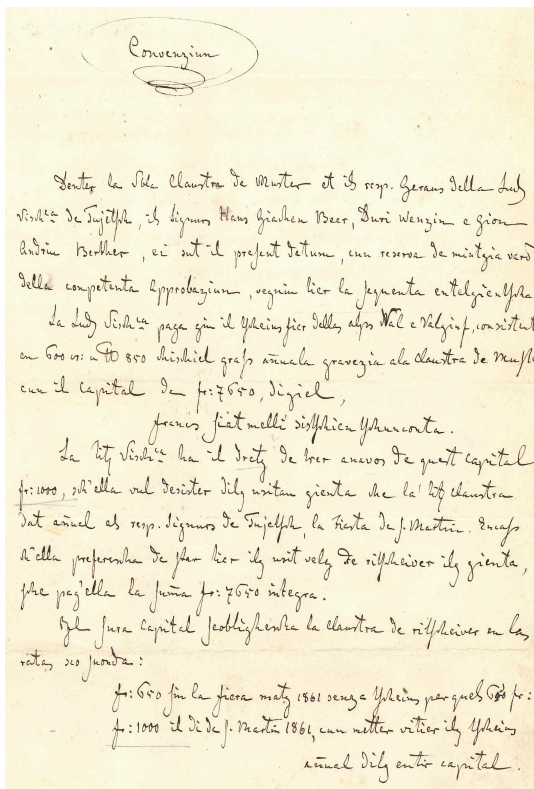 Convenziun
Denter la Lbla Claustra de Muster et ils resp. Geraus della Ludv
Visch.ca de Tujetsch, ils Signurs Hans Giachen Beer, Duri Wenzin e Gion
Andriu Berther, ei sut il present datum, cun reserva de mintgia vard
della competenta Approbaziun, vegniu tier la sequenta
La Ludv Visch.ca paga giu il tscheins fier dellas alps Nal e Valgiuf, consistent
en 600 cr: u 850 chischiel grass añuala gravezia ala Claustra de
cun il Capital de fr: 7650, digiel,
francs siat melli sistschien a tschunconta.
La Visch.ca ha il dretg de trer anavos de quest capital
fr: 1000, sch'ella vul desister dilg usitau gienta che la Claustra
dat añual als resp. Signurs de Tujetsch, la Fiasta de S. Martin. Encass
ch'ella preferescha de star tier ilg usit velg de ritscheiver ilg gienta,
sche pag'ella la suma fr: 7650 integra.
Igl sura Capital seobligescha la Claustra de ritscheiver en las
ratas sco suonda:
fr: 650 sin la fiera matg 1861 senza tscheins per quels 650 fr:
fr: 1000 il di de S. Martin 1861, cun metter vitier ilg tscheins
añual dilg entir capital.